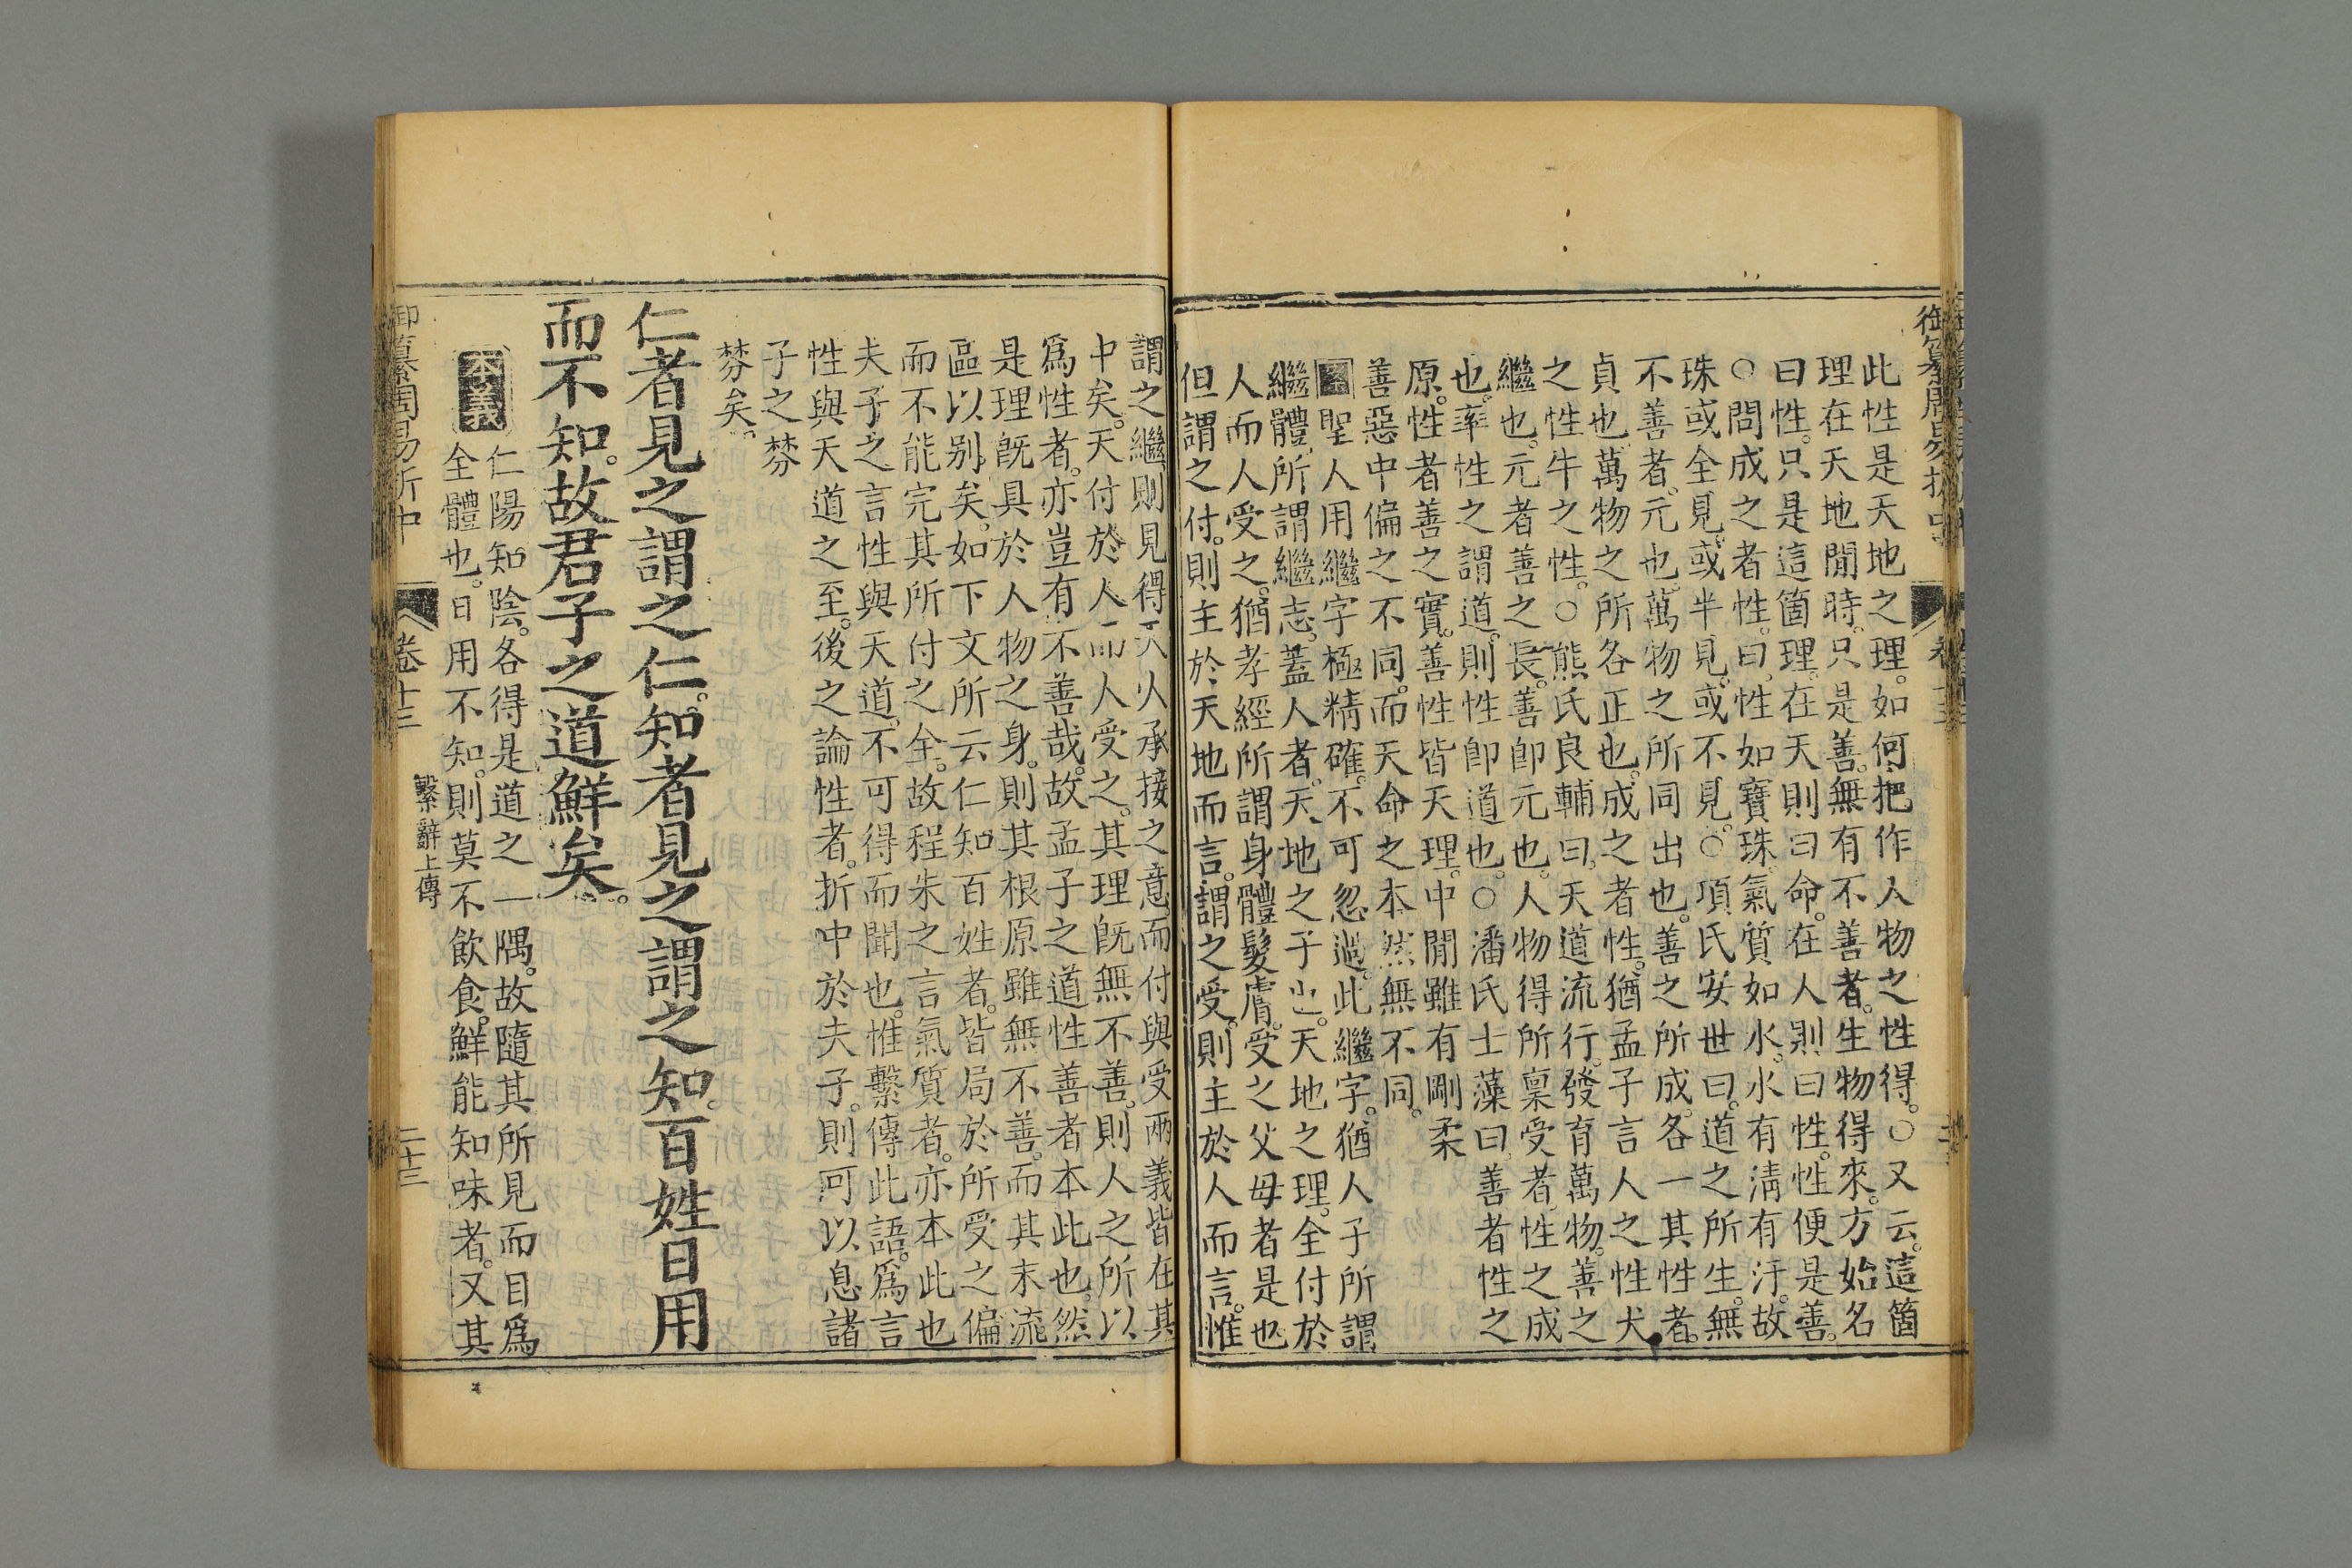 此性是天地之理。如何把作人物之性得。○又云。這箇
理在天地閒時。只是善。無有不善者。生物得來。方始名
曰性。只是這箇理。在天則曰命。在人則曰性。性便是善。
○問成之者性。曰。性如寶珠。氣質如水。水有淸有汙。故
珠或全見。或半見。或不見。○項氏安世曰。道之所生。無
不善者。元也。萬物之所同出也。善之所成。各一其性者。
貞也。萬物之所各正也。成之者性。猶孟子言人之性犬
之性牛之性。○熊氏良輔曰。天道流行。發育萬物。善之
繼也。元者善之長。善卽元也。人物得所稟受者。性之成
也。率性之謂道。則性卽道也。○潘氏士藻曰。善者性之
原。性者善之實。善性皆天理。中閒雖有剛柔
善惡中偏之不同。而天命之本然無不同。
聖人用繼字極精確。不可忽過。此繼字。猶人子所謂
繼體。所謂繼志。蓋人者。天地之子也。天地之理。全付於
人而人受之。猶孝經所謂身體髮膚。受之父母者是也
但謂之付。則主於天地而言。謂之受。則主於人而言。惟
謂之繼。則見得天人承接之意。而付與受兩義皆在其
中矣。天付於人而人受之。其理旣無不善。則人之所以
爲性者。亦豈有不善哉。故孟子之道性善者本此也。然
是理旣具於人物之身。則其根原雖無不善。而其末流
區以别矣。如下文所云仁知百姓者。皆局於所受之偏
而不能完其所付之全。故程朱之言氣質者。亦本此也
夫子之言性與天道。不可得而聞也。惟繫傳此語。爲言
性與天道之至。後之論性者。折中於夫子。則可以息諸
子之棼
棼矣。
仁者見之謂之仁。知者見之謂之知。百姓日用
而不知。故君子之道鮮矣。
本義
仁陽知陰。各得是道之一隅。故隨其所見而目爲
全體也。日用不知。則莫不飲食。鮮能知味者。又其
御纂周易折中 卷十三 繫辭上傳 二十三